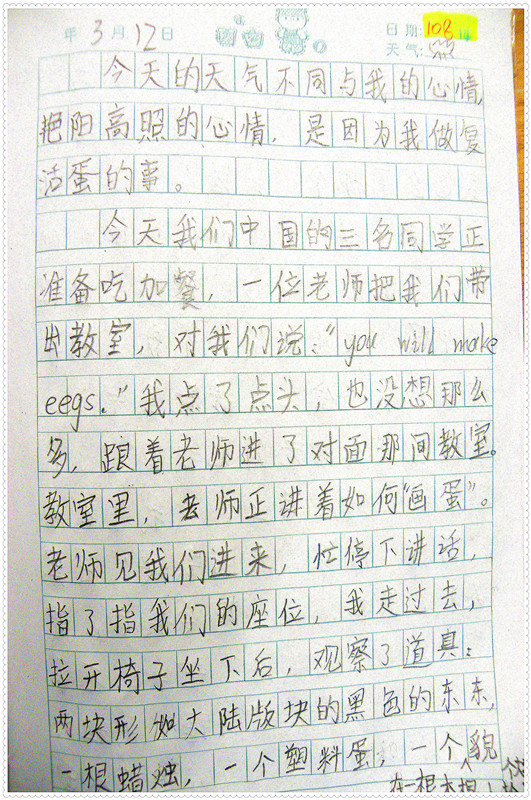 年3月12日 日期:108
天气:
今天的天气不同与我的心情,
艳阳高照的心情,是因为我做复
活蛋的事。
今天我们中国的三名同学正
准备吃加餐,一位老师把我们带
出教室,对我们说:"you will make
eegs."我点了点头,也没想那么
多,跟着老师进了对面那间教室。
教室里,老师正讲着如何"画蛋"。
老师见我们进来,忙停下讲话,
指了指我们的座位,我走过去,
拉开椅子坐下后,观察了道具:
两块形如大陆版块的黑色的东东,
一根蜡烛,一个塑料蛋,一个貌